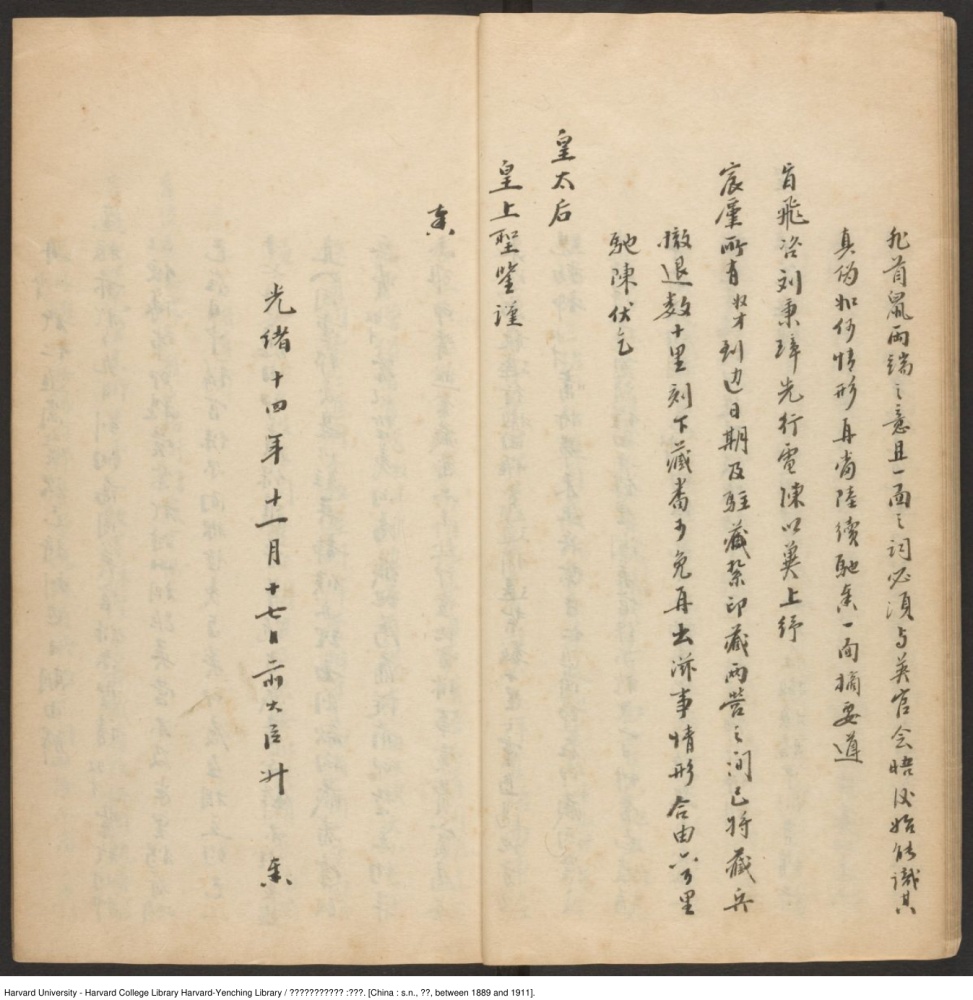 首鼠兩端之意且一面之詞必須与英官会晤後始能識其
真偽如何情形再當陸續馳奏一面摘要遵
旨飛咨刘秉璋先行電陳以冀上紓
宸廑所有奴才到边日期及駐藏紮卬藏兩營之间已將藏兵
撤退数十里刻下藏番可免再出滋事情形合由六百里
馳陳伏乞
皇太后
皇上聖鑒謹
奏
光緒十四年十一月十七日前大臣升 奏
Harvard University - Harvard College Library Harvard-Yenching Library / ??????????? :???. [China : s.n., ??, between 1889 and 1911].